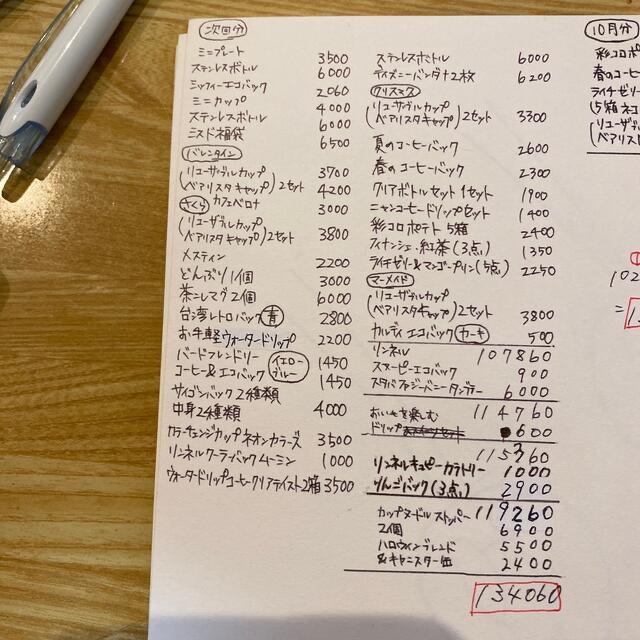 次回分
ミニプレート 3500
ステンレスボトル 6000
ミッフィーエコバック 2060
ミニカップ 4000
ステンレスボトル 6000
ミスド福袋 6500
バレンタイン
(リユーザブルカップ 3700
ベアリスタキャップ)2セット 4200
さくら カフェベロナ 3000
(リユーザブルカップ
ベアリスタキャップ)2セット 3800
メスティン 2200
どんぶり1個 3000
茶こしマグ2個 6000
台湾レトロバック 青 2800
お手軽ウォータードリップ 2200
バードフレンドリー イエロー 1450
コーヒー&エコバック ブルー 1450
サイゴンバック2種類
中身2種類 4000
カラーチェンジカップネオンカラーズ 3500
リンネルクーラーバックムーミン 1000
ウォータードリップコーヒークリアテイスト2箱 3500
ステンレスボトル 6000
ディズニーバンダナ2枚 6200
クリスマス
(リユーザブルカップ
ベアリスタキャップ)2セット 3300
夏のコーヒーバック 2600
春のコーヒーバック 2300
クリアボトルセット1セット 1900
ニャンコーヒードリップセット 1400
彩コロポテト5箱 2400
フィナンシェ・紅茶(3点) 1350
ライチゼリー&マンゴープリン(5点) 2250
マーメイド
(リユーザブルカップ
ベアリスタキャップ)2セット 3800
カルディエコバック カーキ 500
リンネル 107860
スヌーピーエコバック 900
スタバファジーバニータンブラー 6000
おいもを楽しむ 114760
ドリップ 600
115360
リンネルキューピーカラトリー 1000
りんごバック(3点) 2900
カップヌードルストッパー 119260
2個 6900
ハロウィンブレンド 5500
&キャニスター缶 2400
134060
10月分
彩コロポ
春のコーヒー
ライチゼリー
(5箱ネコ
(リユーザブ
ベアリス
①
102
=